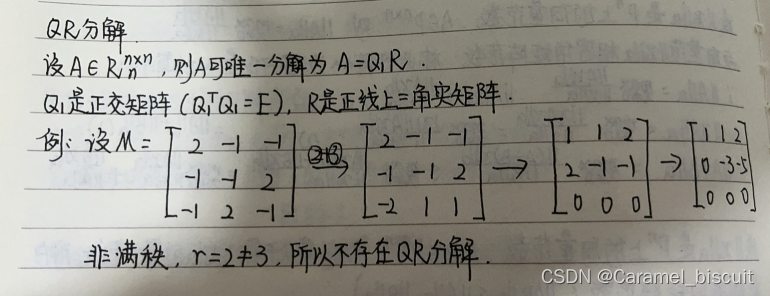 QR分解.
设A∈Rₙⁿˣⁿ, 则A可唯一分解为 A=Q₁R.
Q₁是正交矩阵 (Q₁ᵀQ₁=E), R是正线上三角实矩阵.
例: 设M= [2 -1 -1 ②+③→ [2 -1 -1 → [1 1 2 → [1 1 2
-1 -1 2 -1 -1 2 2 -1 -1 0 -3 -5
-1 2 -1] -2 1 1] 0 0 0] 0 0 0]
非满秩, r=2≠3, 所以不存在QR分解.
CSDN @Caramel_biscuit